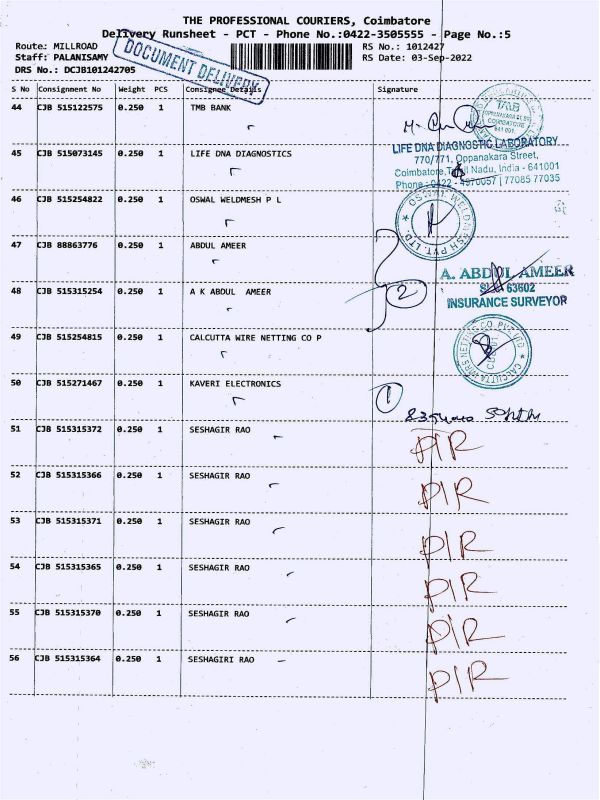 THE PROFESSIONAL COURIERS, Coimbatore
Delivery Runsheet - PCT - Phone No.:0422-3505555 - Page No.:5
Route: MILLROAD
RS No.: 1012427
Staff: PALANISAMY
RS Date: 03-Sep-2022
DRS No.: DCJB101242705
DOCUMENT DELIVERY
S No Consignment No Weight PCS Consignee Details Signature
44 CJB 515122575 0.250 1 TMB BANK
TMB
COIMBATORE
641 001.
45 CJB 515073145 0.250 1 LIFE DNA DIAGNOSTICS
LIFE DNA DIAGNOSTIC LABORATORY
770/771, Oppanakara Street,
Coimbatore, Tamil Nadu, India - 641001
Phone : 0422 - 4970057 | 77085 77035
46 CJB 515254822 0.250 1 OSWAL WELDMESH P L
OSWAL WELDMESH PVT. LTD.
47 CJB 88863776 0.250 1 ABDUL AMEER
A. ABDUL AMEER
SLA 63602
INSURANCE SURVEYOR
48 CJB 515315254 0.250 1 A K ABDUL AMEER
2
49 CJB 515254815 0.250 1 CALCUTTA WIRE NETTING CO P
CALCUTTA WIRE NETTING CO. PVT. LTD
50 CJB 515271467 0.250 1 KAVERI ELECTRONICS
1
51 CJB 515315372 0.250 1 SESHAGIR RAO
PIR
52 CJB 515315366 0.250 1 SESHAGIR RAO
PIR
53 CJB 515315371 0.250 1 SESHAGIR RAO
PIR
54 CJB 515315365 0.250 1 SESHAGIR RAO
PIR
55 CJB 515315370 0.250 1 SESHAGIR RAO
PIR
56 CJB 515315364 0.250 1 SESHAGIRI RAO
PIR